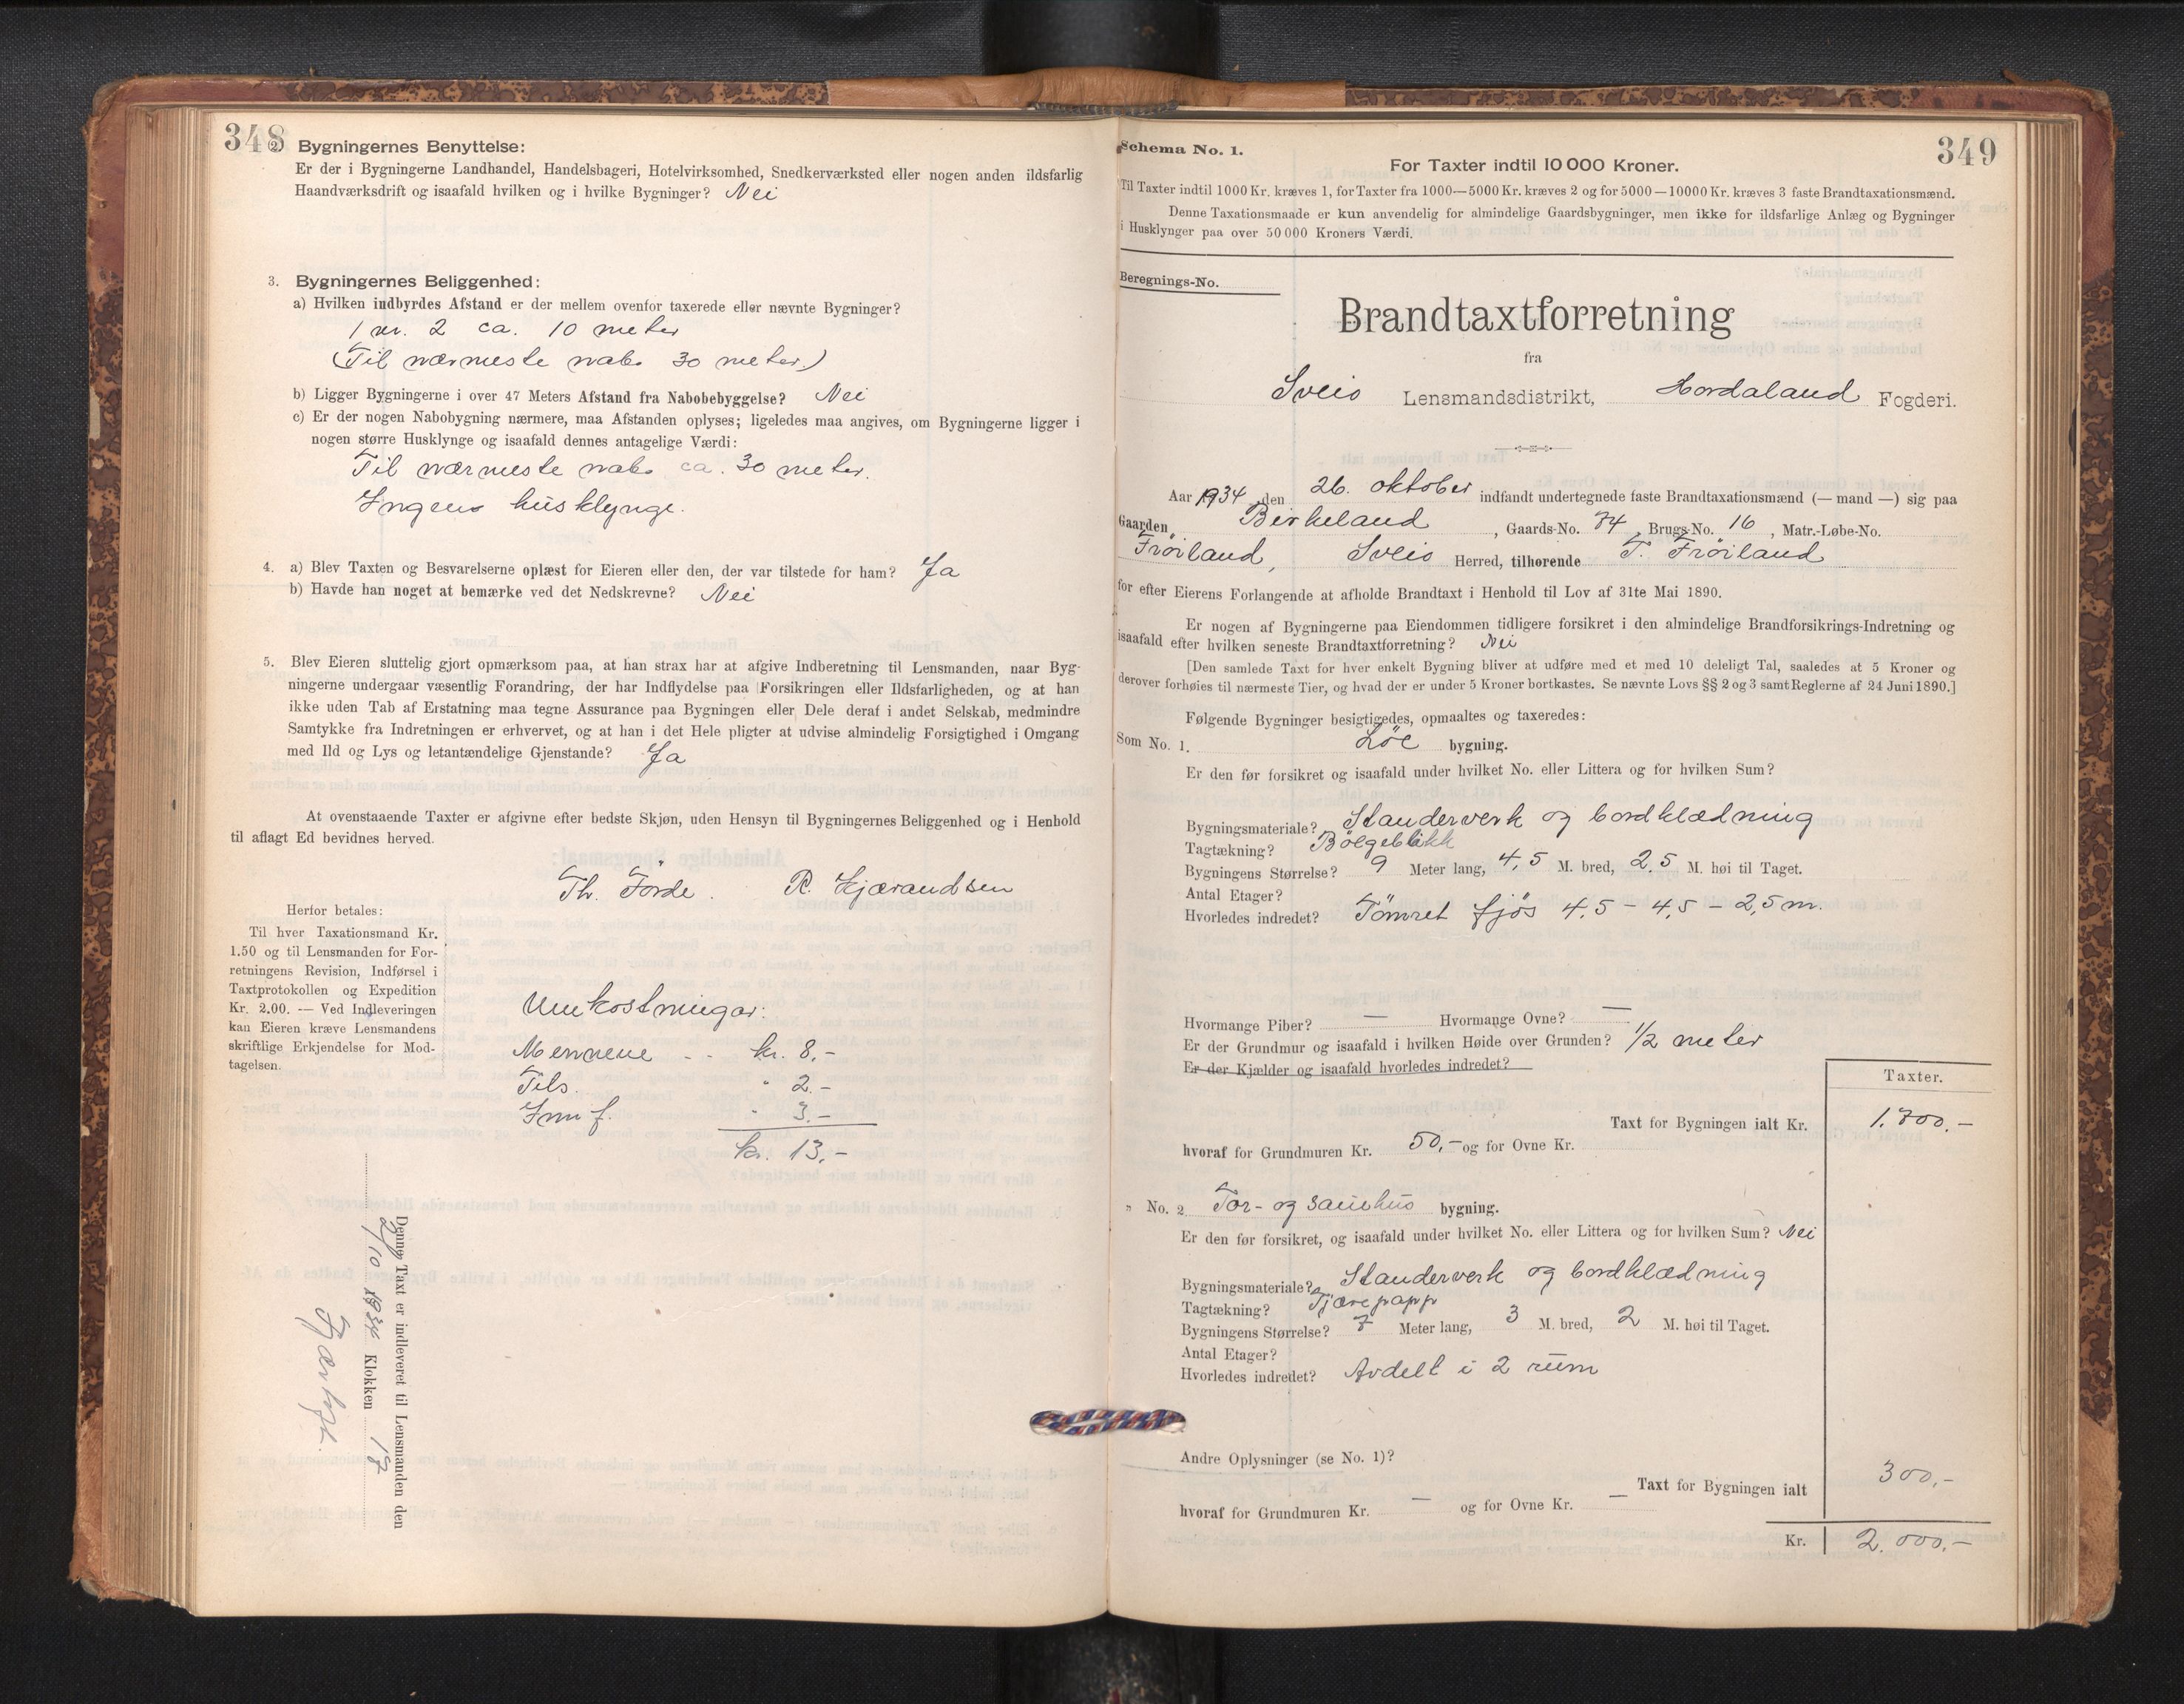 348
2. Bygningernes Benyttelse:
Er der i Bygningerne Landhandel, Handelsbageri, Hotelvirksomhed, Snedkerværksted eller nogen anden ildsfarlig
Haandværksdrift og isaafald hvilken og i hvilke Bygninger? Nei
3. Bygningernes Beliggenhed:
a) Hvilken indbyrdes Afstand er der mellem ovenfor taxerede eller nævnte Bygninger?
1 nr. 2 ca. 10 meter
(Til nærmeste nabo 30 meter.)
b) Ligger Bygningerne i over 47 Meters Afstand fra Nabobebyggelse? Nei
c) Er der nogen Nabobygning nærmere, maa Afstanden oplyses; ligeledes maa angives, om Bygningerne ligger i
nogen større Husklynge og isaafald dennes antagelige Værdi:
Til nærmeste nabo ca. 30 meter.
Ingen husklynge.
4. a) Blev Taxten og Besvarelserne oplæst for Eieren eller den, der var tilstede for ham? Ja
b) Havde han noget at bemærke ved det Nedskrevne? Nei
5. Blev Eieren sluttelig gjort opmærksom paa, at han strax har at afgive Indberetning til Lensmanden, naar Byg-
ningerne undergaar væsentlig Forandring, der har Indflydelse paa Forsikringen eller Ildsfarligheden, og at han
ikke uden Tab af Erstatning maa tegne Assurance paa Bygningen eller Dele deraf i andet Selskab, medmindre
Samtykke fra Indretningen er erhvervet, og at han i det Hele pligter at udvise almindelig Forsigtighed i Omgang
med Ild og Lys og letantændelige Gjenstande? Ja
At ovenstaaende Taxter er afgivne efter bedste Skjøn, uden Hensyn til Bygningernes Beliggenhed og i Henhold
til aflagt Ed bevidnes herved.
Th. Förde. R. Kjærandsen
Herfor betales:
Til hver Taxationsmand Kr.
1.50 og til Lensmanden for For-
retningens Revision, Indførsel i
Taxtprotokollen og Expedition
Kr. 2.00. — Ved Indleveringen
kan Eieren kræve Lensmandens
skriftlige Erkjendelse for Mod-
tagelsen.
Umkostningar:
Mennene - - kr. 8,-
Tils. " 2.-
Innf. " 3.-
kr. 13,-
Denne Taxt er indleveret til Lensmanden den
/10 1934 Klokken 17
349
Schema No. 1.
For Taxter indtil 10 000 Kroner.
Til Taxter indtil 1000 Kr. kræves 1, for Taxter fra 1000—5000 Kr. kræves 2 og for 5000—10000 Kr. kræves 3 faste Brandtaxationsmænd.
Denne Taxationsmaade er kun anvendelig for almindelige Gaardsbygninger, men ikke for ildsfarlige Anlæg og Bygninger
i Husklynger paa over 50 000 Kroners Værdi.
Beregnings-No.
Brandtaxtforretning
fra
Sveio Lensmandsdistrikt, Hordaland Fogderi.
Aar 1934 den 26. oktober indfandt undertegnede faste Brandtaxationsmænd (— mand —) sig paa
Gaarden Birkeland, Gaards-No. 74, Brugs-No. 16, Matr.-Løbe-No.
Fröiland, Sveio Herred, tilhørende T. Fröiland
for efter Eierens Forlangende at afholde Brandtaxt i Henhold til Lov af 31te Mai 1890.
Er nogen af Bygningerne paa Eiendommen tidligere forsikret i den almindelige Brandforsikrings-Indretning og
isaafald efter hvilken seneste Brandtaxtforretning? Nei
[Den samlede Taxt for hver enkelt Bygning bliver at udføre med et med 10 deleligt Tal, saaledes at 5 Kroner og
derover forhøies til nærmeste Tier, og hvad der er under 5 Kroner bortkastes. Se nævnte Lovs §§ 2 og 3 samt Reglerne af 24 Juni 1890.]
Følgende Bygninger besigtigedes, opmaaltes og taxeredes:
Som No. 1. Löe bygning.
Er den før forsikret og isaafald under hvilket No. eller Littera og for hvilken Sum?
Bygningsmateriale? Standerverk og bordklædning
Tagtækning? Bölgeblikk
Bygningens Størrelse? 9 Meter lang, 4,5 M. bred, 2,5 M. høi til Taget.
Antal Etager?
Hvorledes indredet? Tömret fjös 4,5 - 4,5 - 2,5 m.
Hvormange Piber? — Hvormange Ovne? —
Er der Grundmur og isaafald i hvilken Høide over Grunden? 1/2 meter
Er der Kjælder og isaafald hvorledes indredet?
Taxter.
Taxt for Bygningen ialt Kr. 1.700,-
hvoraf for Grundmuren Kr. 50,- og for Ovne Kr.
" No. 2 Tor- og sauehus bygning.
Er den før forsikret, og isaafald under hvilket No. eller Littera og for hvilken Sum? Nei
Bygningsmateriale? Standerverk og bordklædning
Tagtækning? Tjærepapp
Bygningens Størrelse? 7 Meter lang, 3 M. bred, 2 M. høi til Taget.
Antal Etager?
Hvorledes indredet? Avdelt i 2 rum
Andre Oplysninger (se No. 1)?
Taxt for Bygningen ialt 300,-
hvoraf for Grundmuren Kr. — og for Ovne Kr. —
Kr. 2.000,-